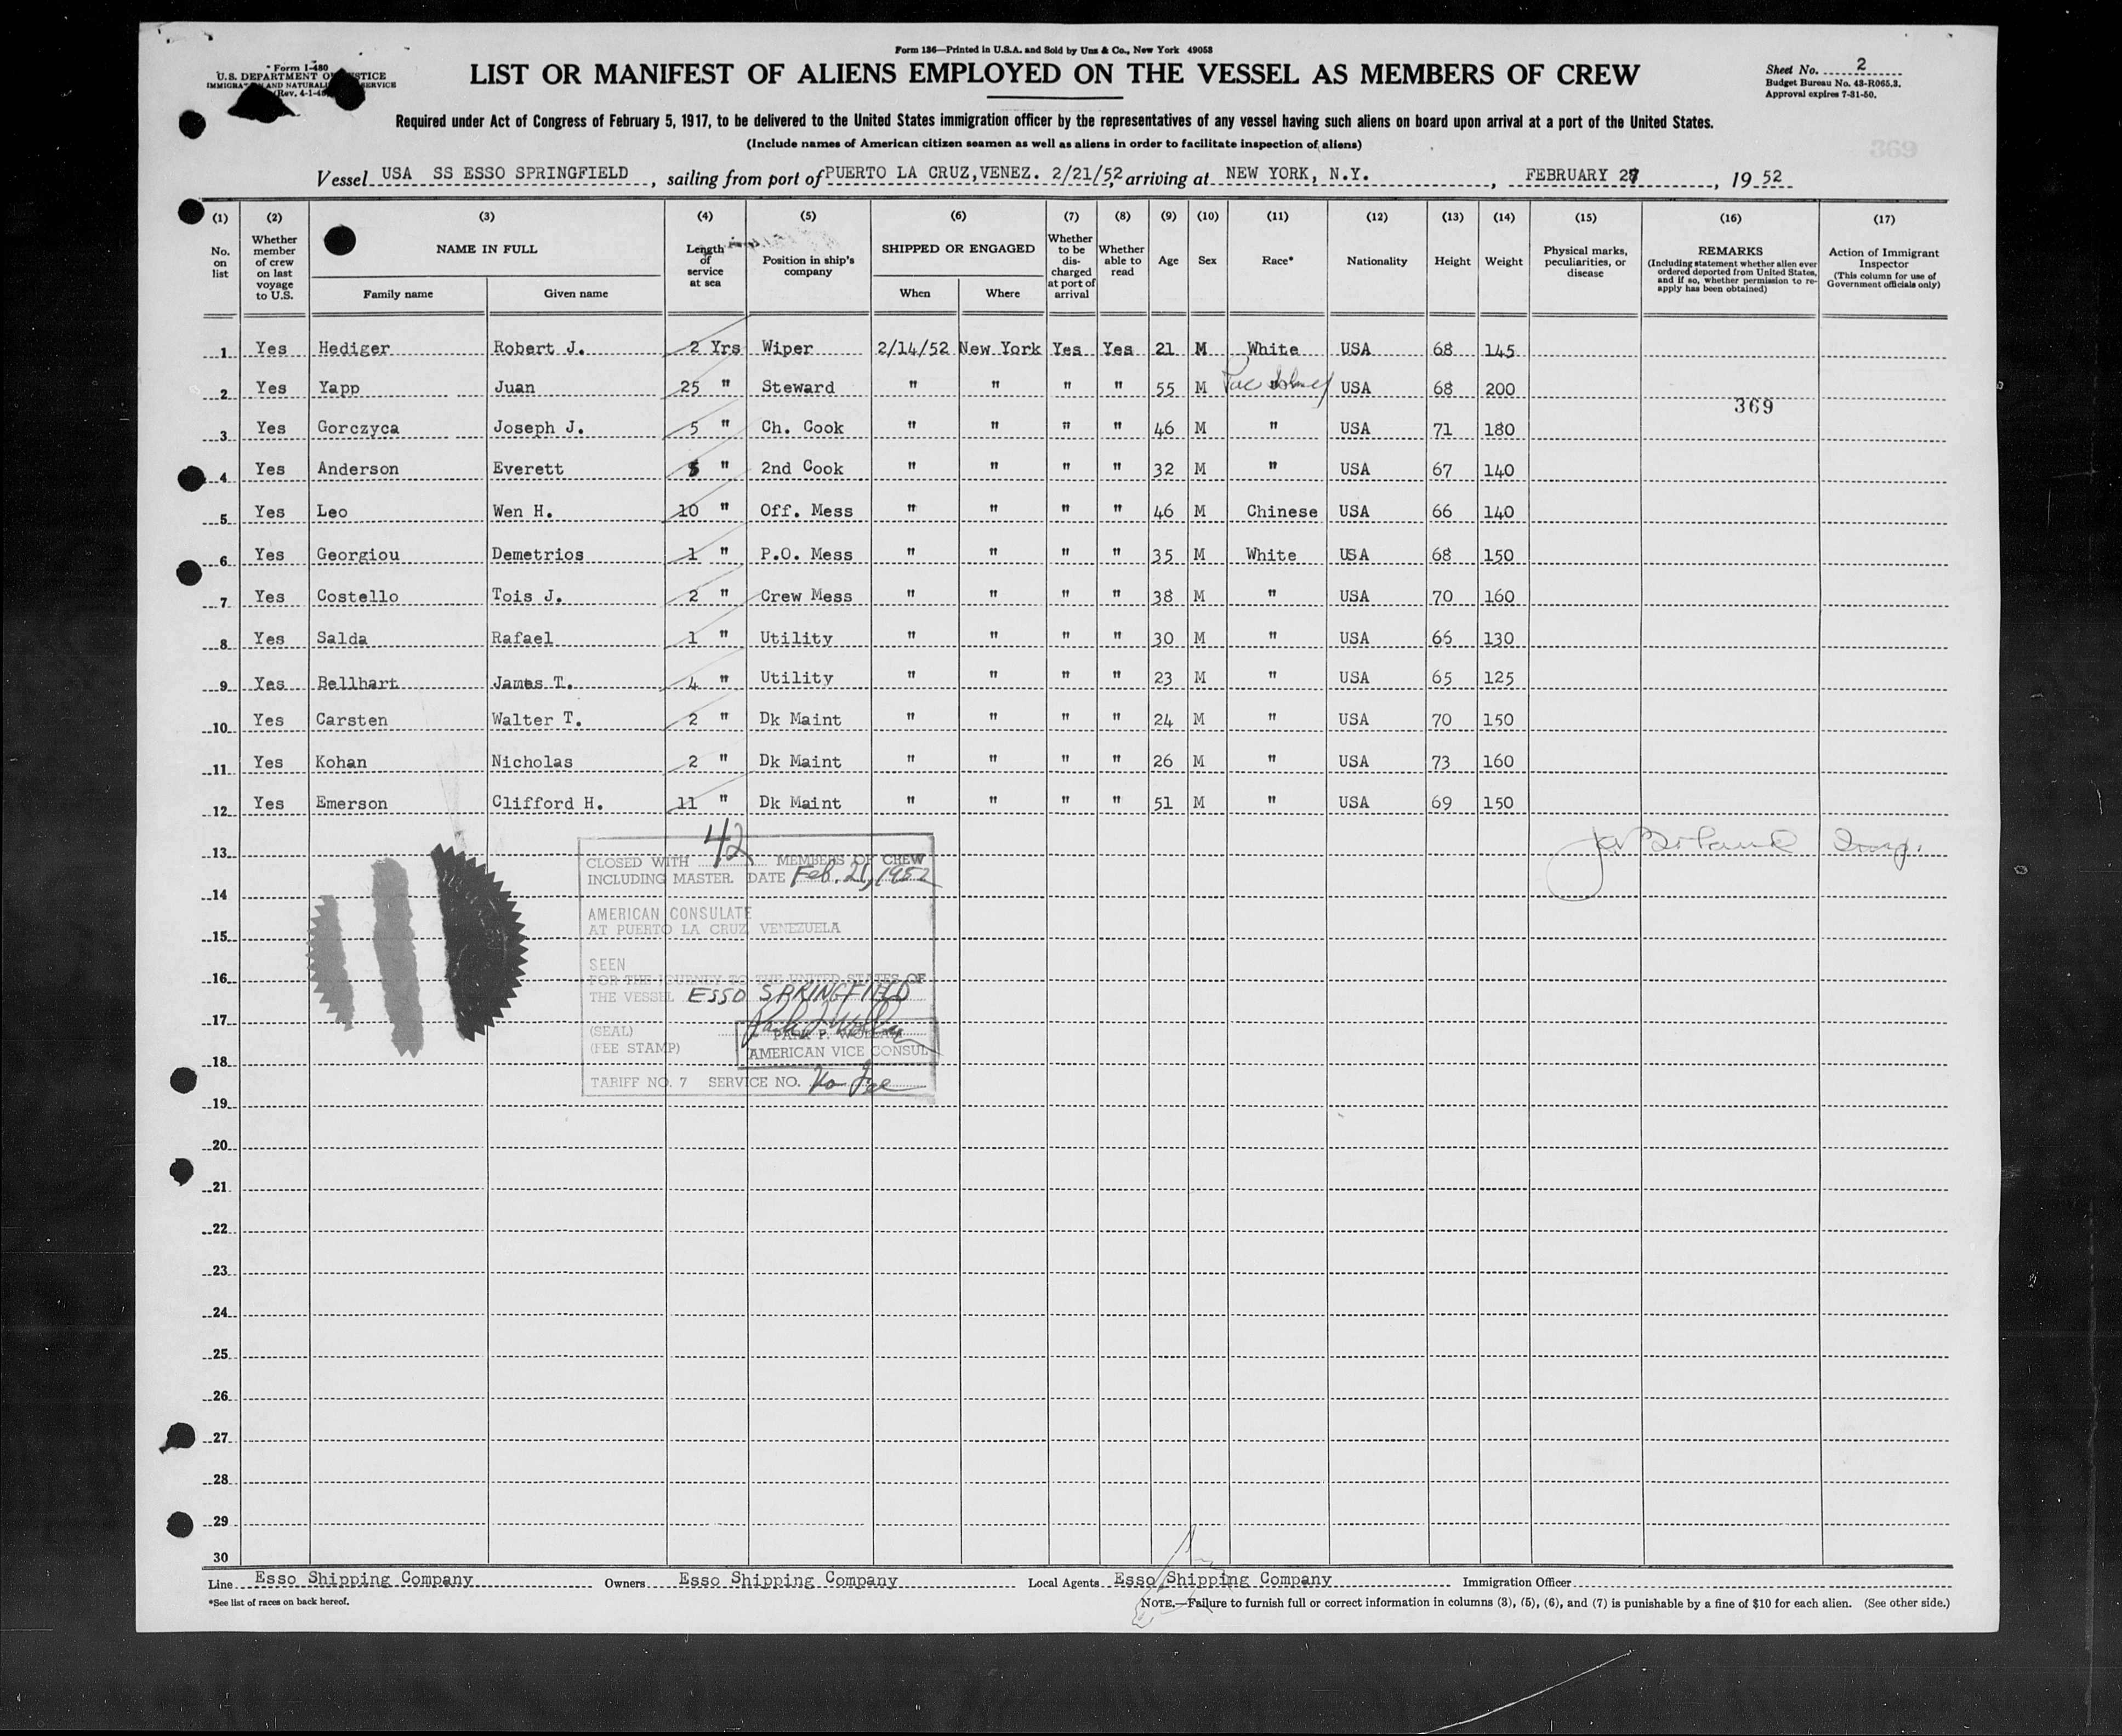 Form 136—Printed in U.S.A. and Sold by Unz & Co., New York 49053
Form I-480
U.S. DEPARTMENT OF JUSTICE
IMMIGRATION AND NATURALIZATION SERVICE
(Rev. 4-1-4
LIST OR MANIFEST OF ALIENS EMPLOYED ON THE VESSEL AS MEMBERS OF CREW
Sheet No. 2
Budget Bureau No. 43-R065.3.
Approval expires 7-31-50.
Required under Act of Congress of February 5, 1917, to be delivered to the United States immigration officer by the representatives of any vessel having such aliens on board upon arrival at a port of the United States.
(Include names of American citizen seamen as well as aliens in order to facilitate inspection of aliens)
369
Vessel USA SS ESSO SPRINGFIELD, sailing from port of PUERTO LA CRUZ, VENEZ. 2/21/52, arriving at NEW YORK, N.Y., FEBRUARY 27, 1952
(1) (2) (3) (4) (5) (6) (7) (8) (9) (10) (11) (12) (13) (14) (15) (16) (17)
No. on list
Whether member of crew on last voyage to U.S.
NAME IN FULL
Family name
Given name
Length of service at sea
Position in ship's company
SHIPPED OR ENGAGED
When
Where
Whether to be discharged at port of arrival
Whether able to read
Age
Sex
Race*
Nationality
Height
Weight
Physical marks, peculiarities, or disease
REMARKS
(Including statement whether alien ever ordered deported from United States, and if so, whether permission to re-apply has been obtained)
Action of Immigrant Inspector
(This column for use of Government officials only)
1 Yes Hediger Robert J. 2 Yrs Wiper 2/14/52 New York Yes Yes 21 M White USA 68 145
2 Yes Yapp Juan 25 " Steward " " " " 55 M " USA 68 200
369
3 Yes Gorczyca Joseph J. 5 " Ch. Cook " " " " 46 M " USA 71 180
4 Yes Anderson Everett 5 " 2nd Cook " " " " 32 M " USA 67 140
5 Yes Leo Wen H. 10 " Off. Mess " " " " 46 M Chinese USA 66 140
6 Yes Georgiou Demetrios 1 " P.O. Mess " " " " 35 M White USA 68 150
7 Yes Costello Tois J. 2 " Crew Mess " " " " 38 M " USA 70 160
8 Yes Salda Rafael 1 " Utility " " " " 30 M " USA 66 130
9 Yes Bellhart James T. 4 " Utility " " " " 23 M " USA 65 125
10 Yes Carsten Walter T. 2 " Dk Maint " " " " 24 M " USA 70 150
11 Yes Kohan Nicholas 2 " Dk Maint " " " " 26 M " USA 73 160
12 Yes Emerson Clifford H. 11 " Dk Maint " " " " 51 M " USA 69 150
13
14
15
16
17
18
19
20
21
22
23
24
25
26
27
28
29
30
CLOSED WITH 42 MEMBERS OF CREW
INCLUDING MASTER. DATE Feb. 21, 1952
AMERICAN CONSULATE
AT PUERTO LA CRUZ VENEZUELA
SEEN
FOR THE JOURNEY TO THE UNITED STATES OF
THE VESSEL ESSO SPRINGFIELD
(SEAL)
(FEE STAMP)
PARK P.
AMERICAN VICE CONSUL
TARIFF NO. 7 SERVICE NO. No fee
Line Esso Shipping Company Owners Esso Shipping Company Local Agents Esso Shipping Company Immigration Officer
*See list of races on back hereof.
NOTE.—Failure to furnish full or correct information in columns (3), (5), (6), and (7) is punishable by a fine of $10 for each alien. (See other side.)